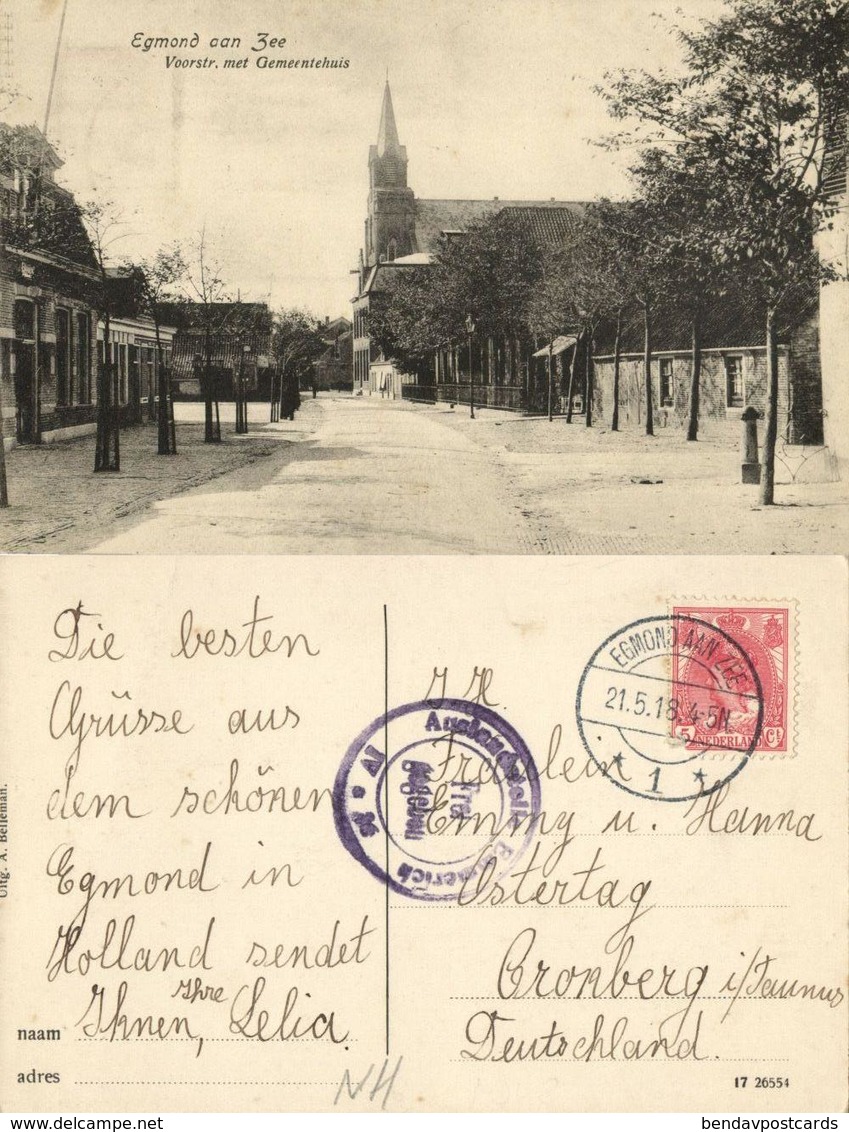 Egmond aan Zee
Voorstr. met Gemeentehuis
Die besten
Grüsse aus
dem schönen
Egmond in
Holland sendet
Ihre
Ihnen, Lelia.
naam
adres
NH
Uitg. A. Belleman.
EGMOND AAN ZEE
21.5.18. 4-5N
1
5 NEDERLAND Ct
Auslandstelle Emmerich
Frei
gegeben
Fräulein
Emmy u. Hanna
Ostertag
Cronberg i/Taunus
Deutschland.
17 26554
delcampe.net
bendavpostcards